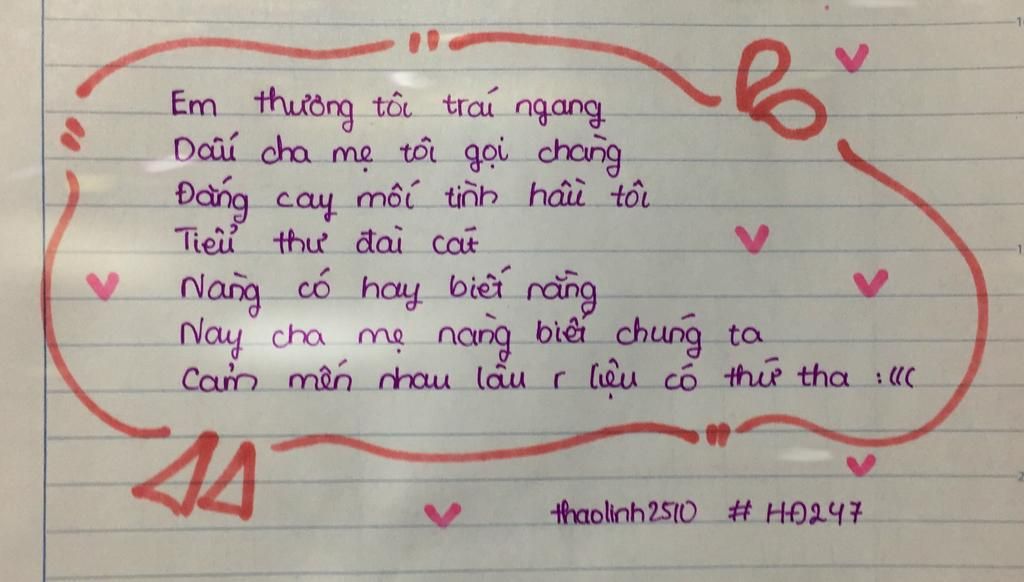 Em thương tôi trái ngang
Dấu cha mẹ tôi gọi chàng
Đắng cay mối tình hầu tôi
Tiểu thư đài cát
Nàng có hay biết rằng
Nay cha mẹ nàng biết chúng ta
Cảm mến nhau lâu r liệu có thứ tha :(((
thaolinh2510 # HĐ247